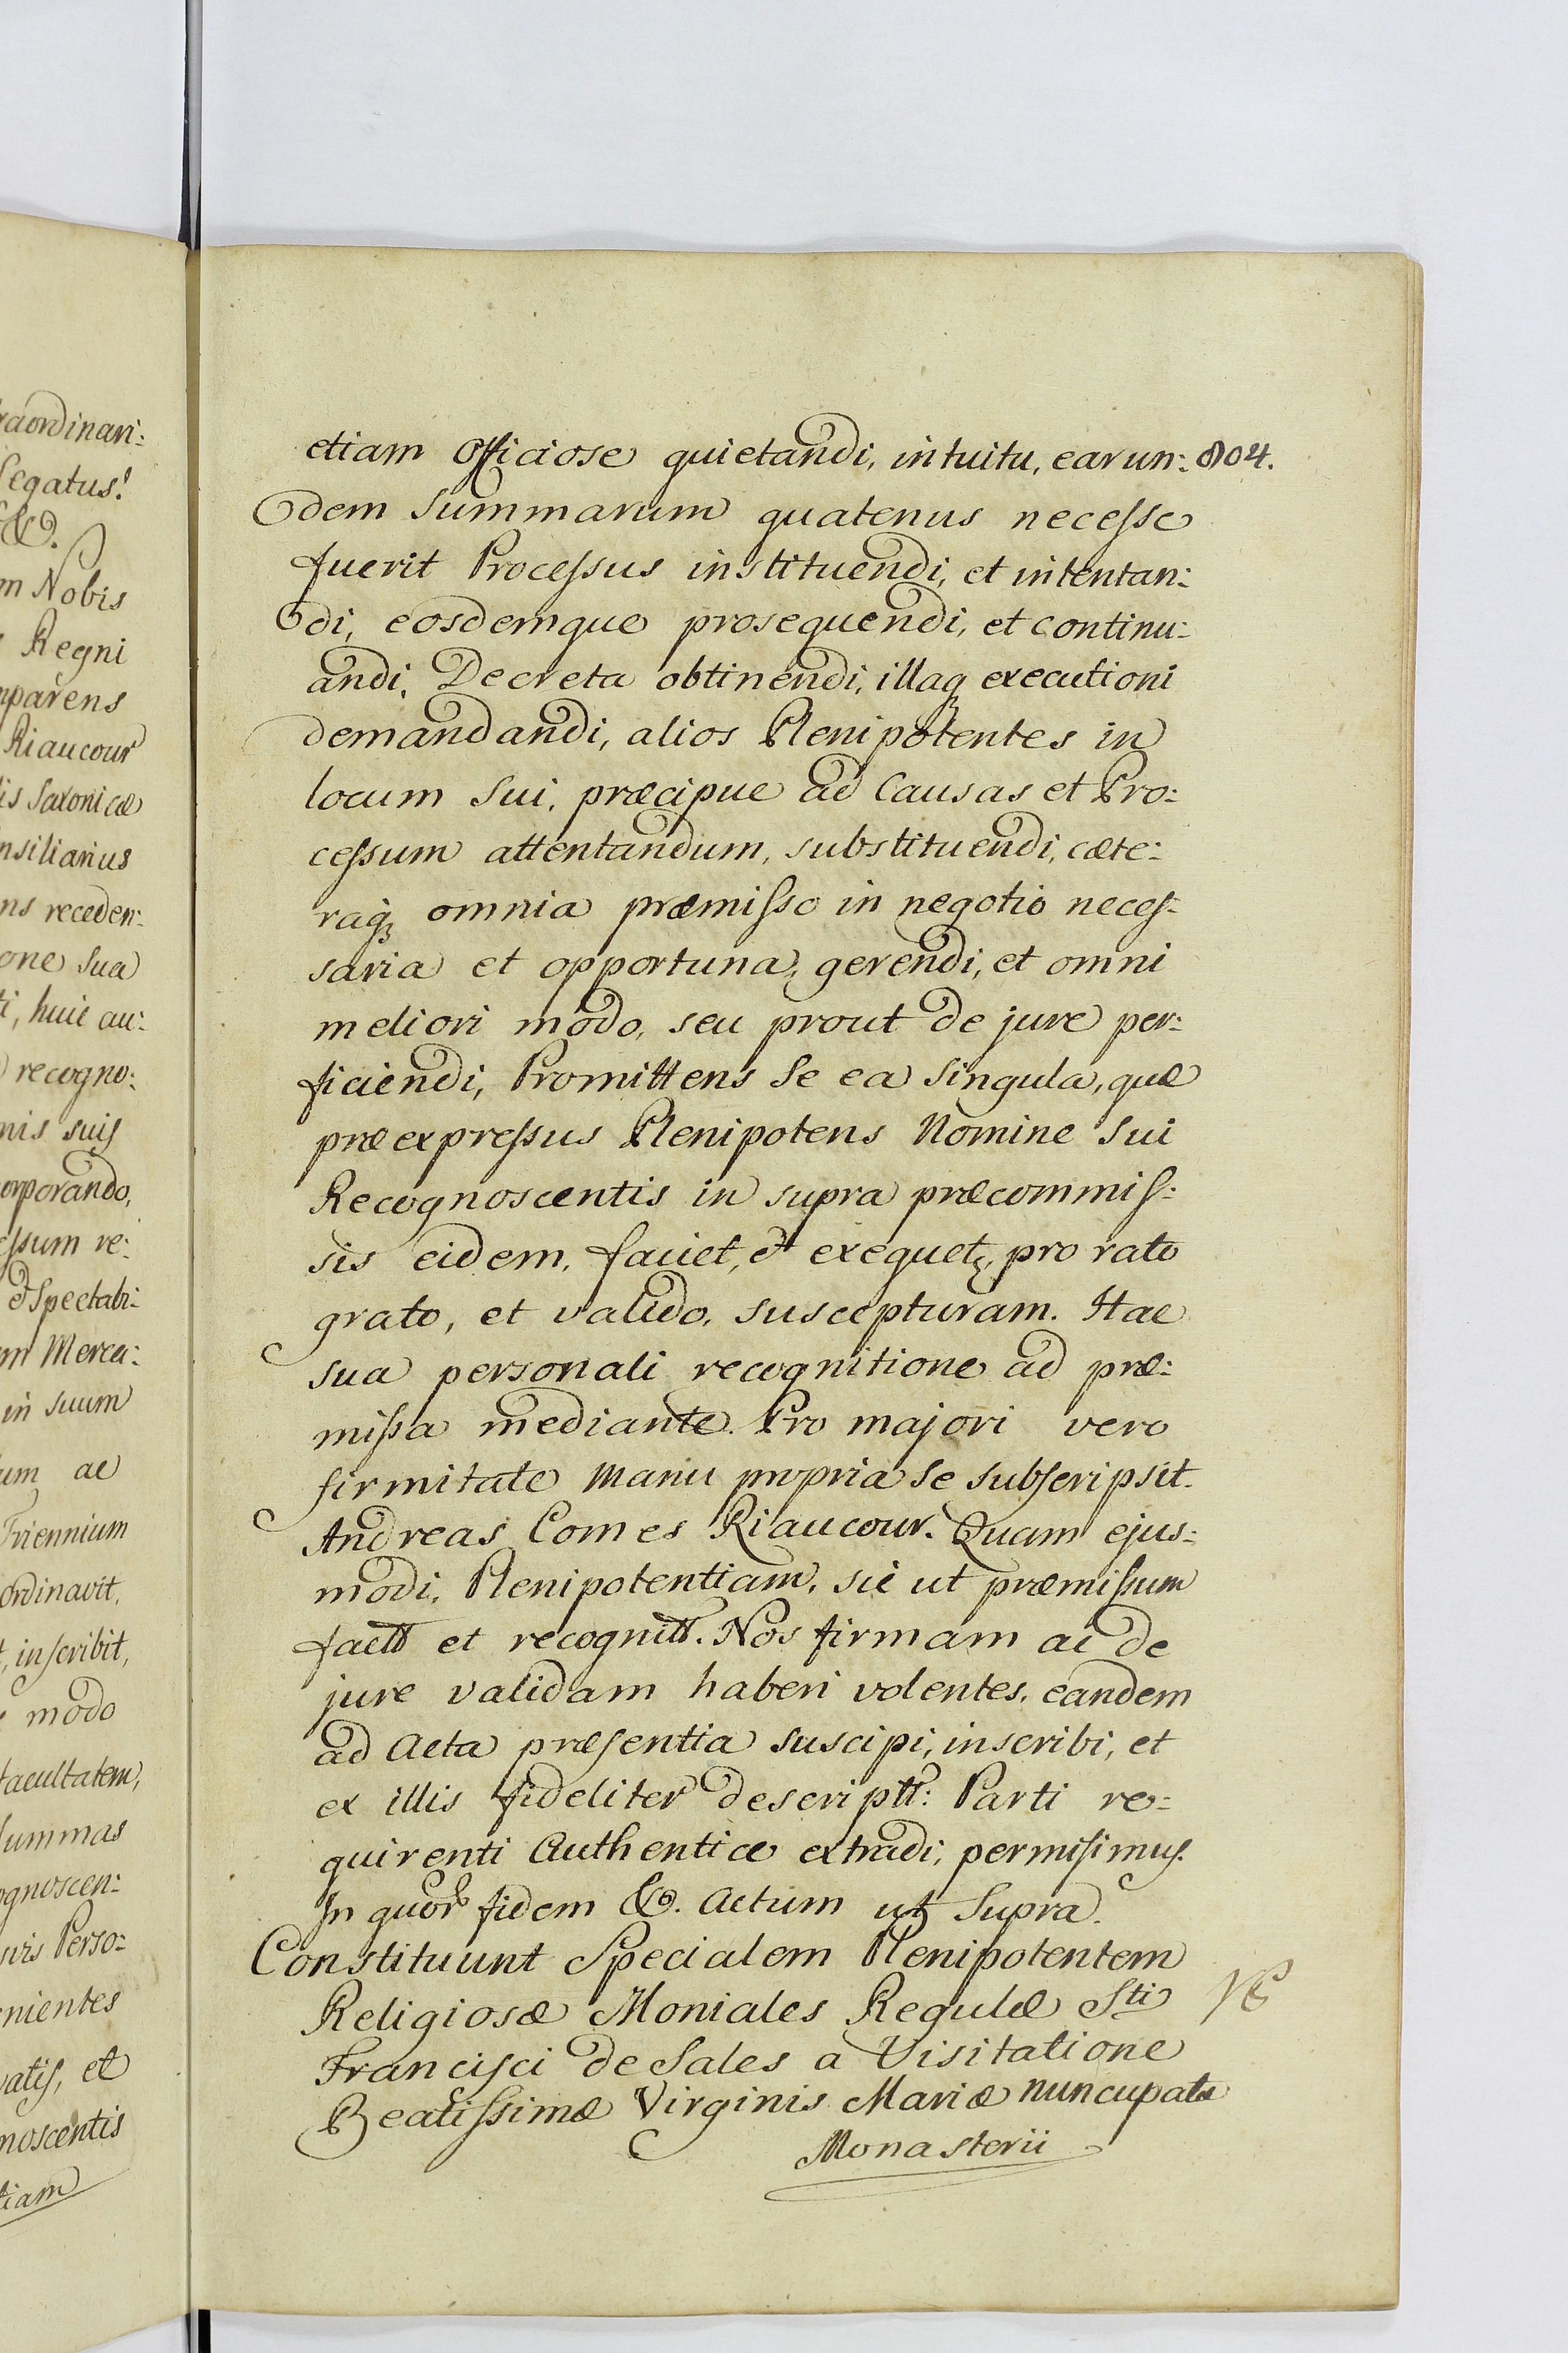 raordinari:
Legatus!
&c.
m Nobis
Regni
mparens
Riaucour
is Saxonicæ
nsiliarius
ns receden:
one sua
ti, huic au:
recogno:
nis suis
orporando,
essum re:
et Spectabi:
m Merca:
in suum
um ac
Triennium
ordinavit,
t, inscribit,
modo
facultatem,
summas
ognoscen:
uis Perso:
enientes
vatis, et
noscentis
tiam
etiam Officiose quietandi, intuitu, earun: 804.
dem Summarum quatenus necesse
fuerit Processus instituendi, et intentan:
di, eosdemque prosequendi, et continu:
andi, Decreta obtinendi, illaq executioni
demandandi, alios Plenipotentes in
locum Sui, præcipue ad Causas et Pro:
cessum attentandum, substituendi, cæte:
raq omnia præmisso in negotio neces:
saria et opportuna, gerendi, et omni
meliori modo, seu prout de jure per:
ficiendi, Promittens Se ea Singula, quæ
præexpressus Plenipotens Nomine Sui
Recognoscentis in supra præcommis:
sis eidem, faciet, et exequet, pro rato
grato, et valido, suscepturam. Hac
sua personali recognitione ad præ:
missa mediante. Pro majori vero
firmitate Manu propria Se subscripsit.
Andreas Comes Riaucour. Quam ejus:
modi, Plenipotentiam, sic ut præmissum
factt et recognitt. Nos firmam ac de
jure validam haberi volentes, eandem
ad Acta præsentia suscipi, inscribi, et
ex illis fideliter descriptt: Parti re:
quirenti Authentice extradi, permisimus.
In quor fidem &c. Actum ut Supra.
Constituunt Specialem Plenipotentem
Religiosæ Moniales Regulæ Sti
Francisci de Sales a Visitatione
Beatissimæ Virginis Mariæ nuncupata
Monasterii